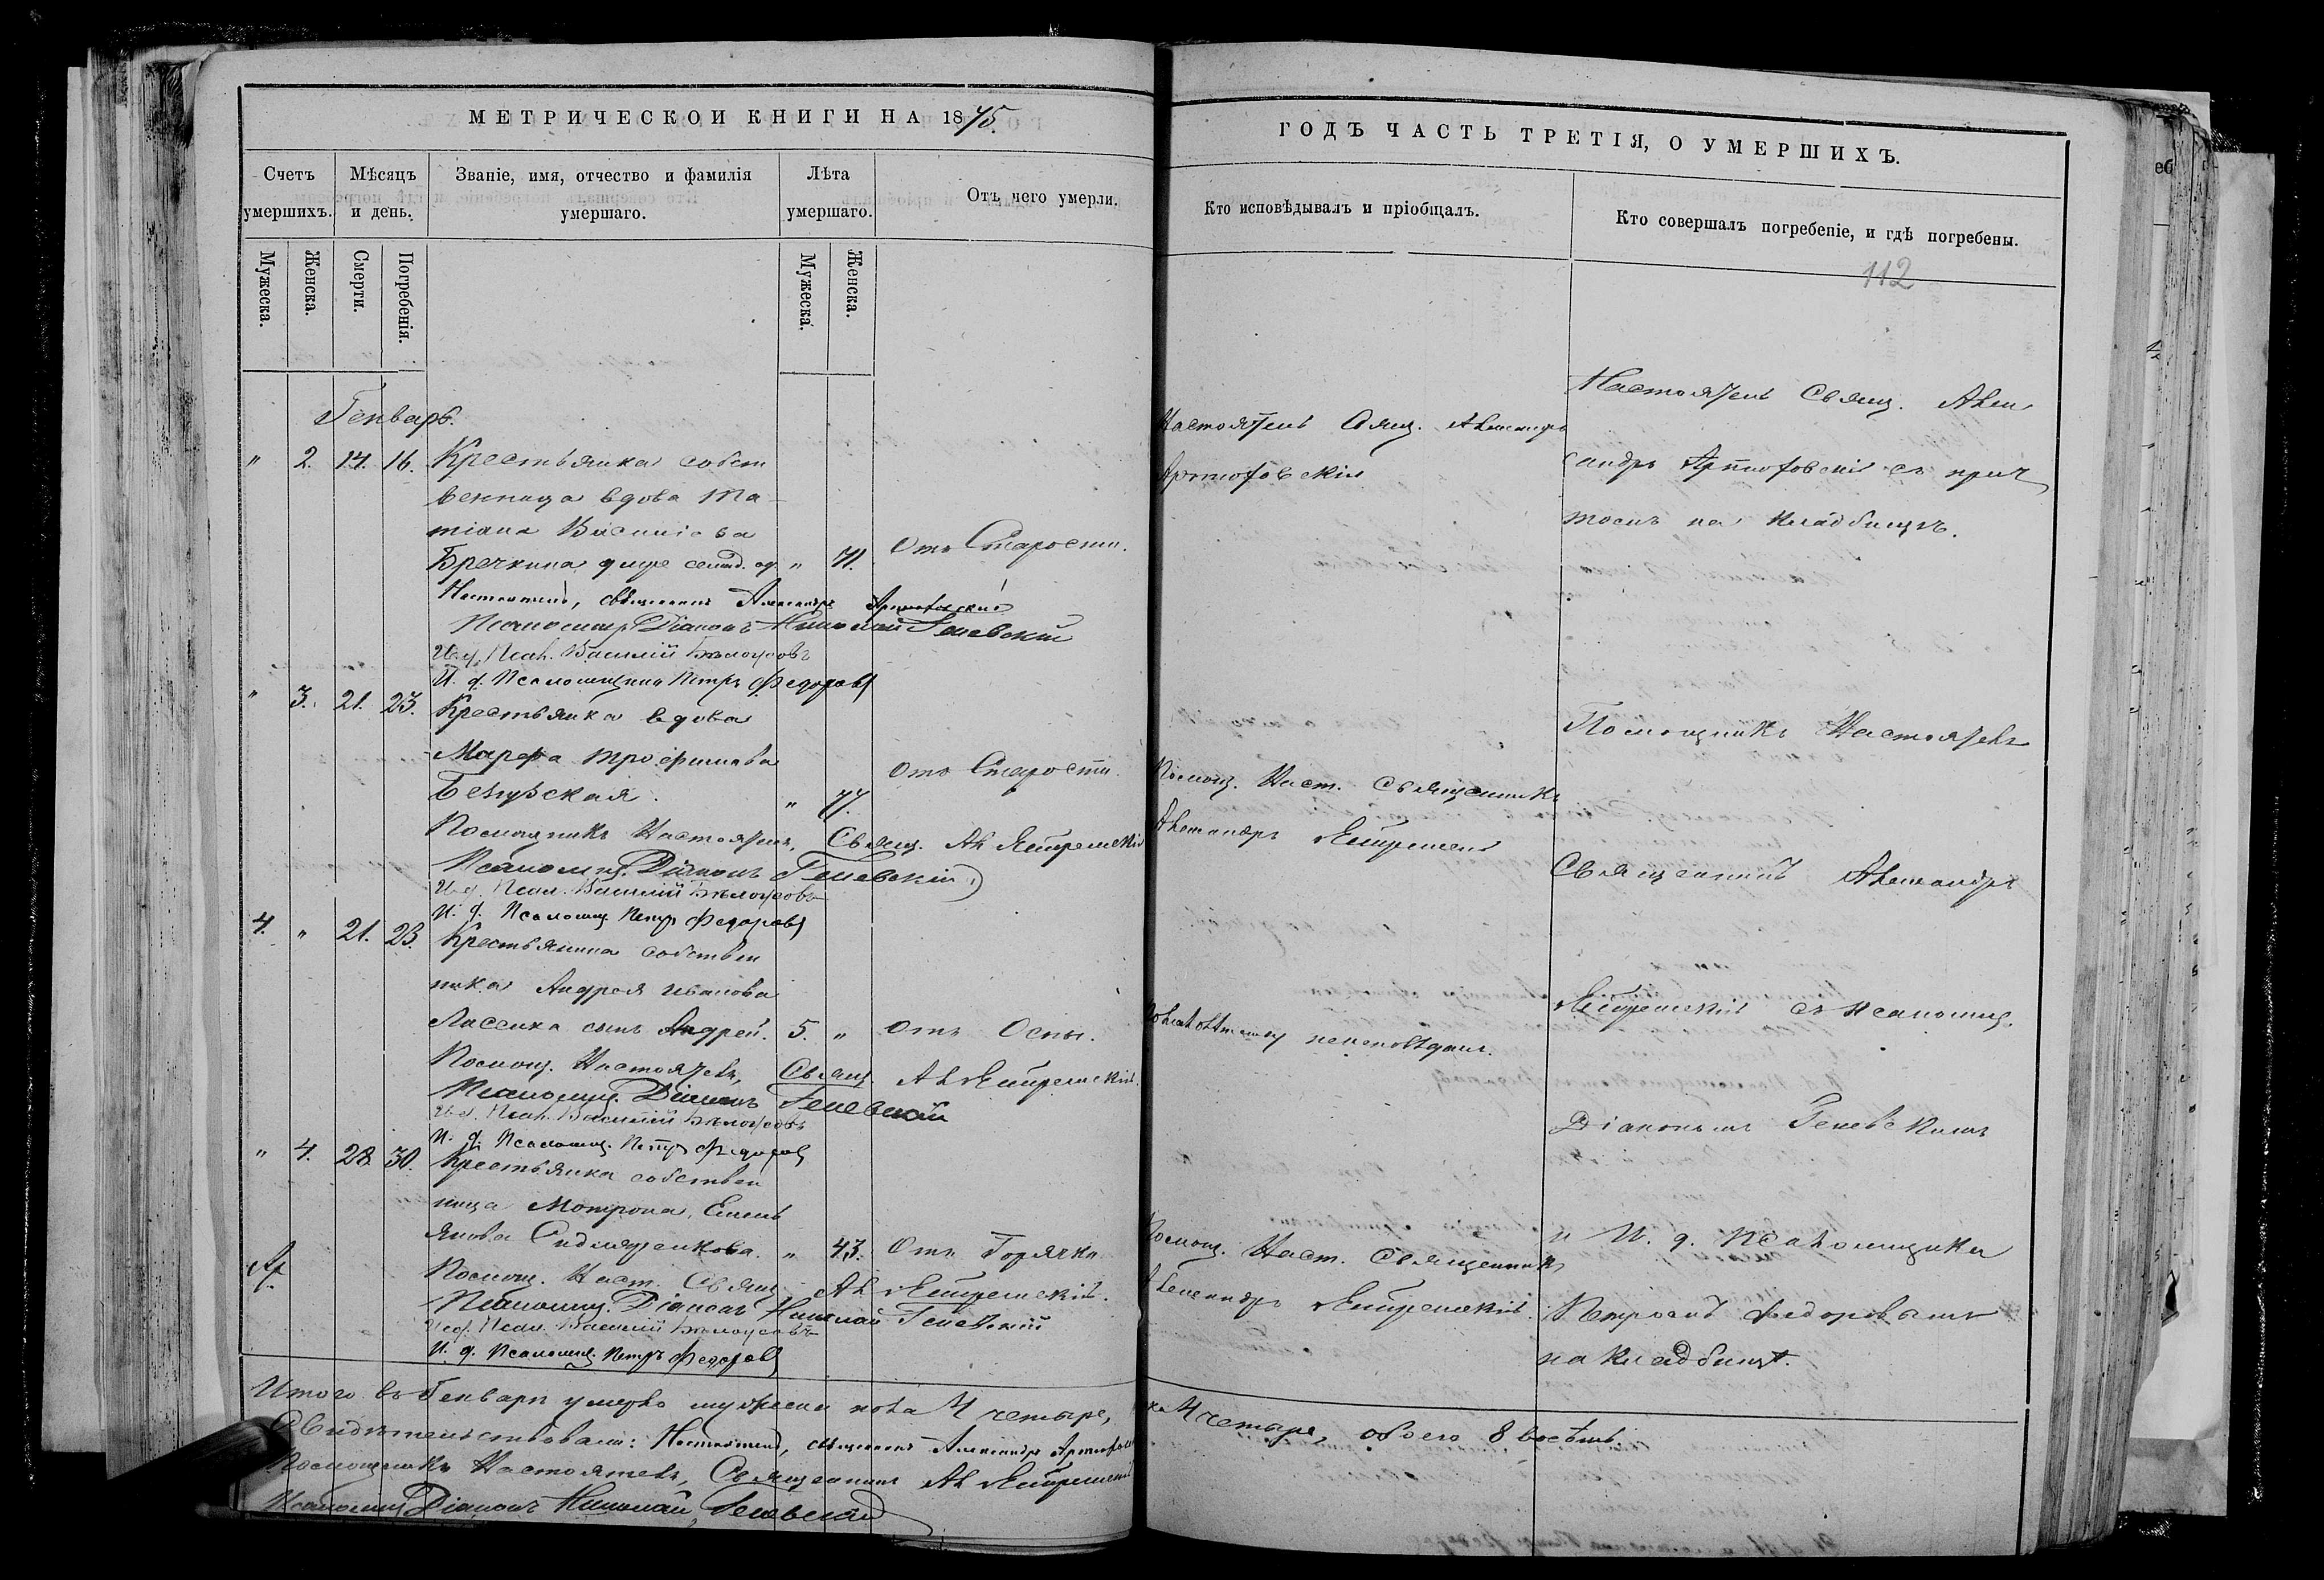 МЕТРИЧЕСКОЙ КНИГИ НА 1875.
Счетъ умершихъ.
Мѣсяцъ и день.
Званіе, имя, отчество и фамилія умершаго.
Лѣта умершаго.
Отъ чего умерли.
Мужеска.
Женска.
Смерти.
Погребенія.
Мужеска.
Женска.
Генварь.
" 2. 14. 16. Крестьянка собст
венница вдова Та-
тіана Василіева
Бречкина " 71. Отъ Старости.
Настоятель, священникъ Александръ Артюховскій
Псаломщ. Діаконъ Николай Геневскій
И. д. Псал. Василій Бѣлоусовъ
И. д. Псаломщика Петръ Федоровъ
" 3. 21. 23. Крестьянка вдова
Марфа Трофимова
" 77. Отъ Старости.
Помощникъ Настоятеля, Свящ. Ал Ястремскій
Псаломщ. Діаконъ Геневскій
И. д. Псал. Василій Бѣлоусовъ
И. д. Псаломщ. Петръ Федоровъ
4. " 21. 23. Крестьянина собствен
ника Андрея Иванова
Лисенка сынъ Андрей. 5. " Отъ Оспы.
Помощ. Настоятеля, Свящ. Ал Ястремскій.
Псаломщ. Діаконъ Геневскій
И. д. Псал. Василій Бѣлоусовъ
И. д. Псаломщ. Петръ Федоровъ
" 4. 28. 30. Крестьянка собствен
ница Мотрона Емель
янова " 43. Отъ Горячки
Помощ. Наст. Свящ. Ал Ястремскій.
Псаломщ. Діаконъ Николай Геневскій
И. д. Псал. Василій Бѣлоусовъ
И. д. Псаломщ. Петръ Федоровъ
Итого въ Генварѣ умерло мужеска пола 4 четыре,
Свидѣтельствовали: Настоятель, священникъ Александръ
Помощникъ Настоятеля, Священникъ Ал Ястремскій
Псаломщ. Діаконъ Николай Геневскій
ГОДЪ ЧАСТЬ ТРЕТІЯ, О УМЕРШИХЪ.
Кто исповѣдывалъ и пріобщалъ.
Кто совершалъ погребеніе, и гдѣ погребены.
112
Настоятель Свящ. Александръ
Артюховскій
Помощ. Наст. Священникъ
Александръ Ястремскій
неисповѣдан.
Помощ. Наст. Священникъ
Александръ Ястремскій.
Настоятель Свящ. Алек
сандръ Артюховскій съ прич
томъ на кладбищѣ.
Помощникъ Настоятеля
Священникъ Александръ
Ястремскій съ псаломщ.
Діакономъ Геневскимъ
и И. д. Псаломщика
Петромъ Федоровымъ
на кладбищѣ.
4 четыре, обоего 8 восѣмь.